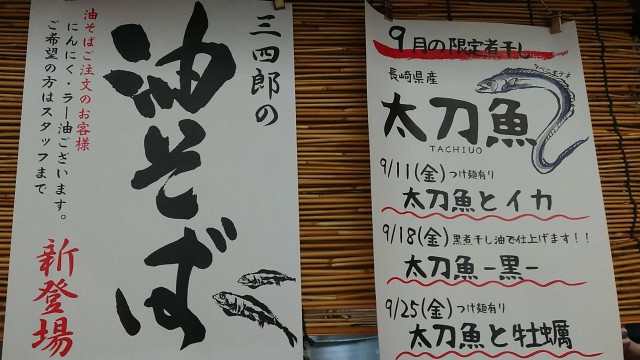 三四郎の
油そば
油そばご注文のお客様
にんにく・ラー油ございます。
ご希望の方はスタッフまで
新登場
9月の限定煮干し
長崎県産
太刀魚
TACHIUO
9/11(金)つけ麺有り
太刀魚とイカ
9/18(金)黒煮干し油で仕上げます!!
太刀魚-黒-
9/25(金)つけ麺有り
太刀魚と牡蠣